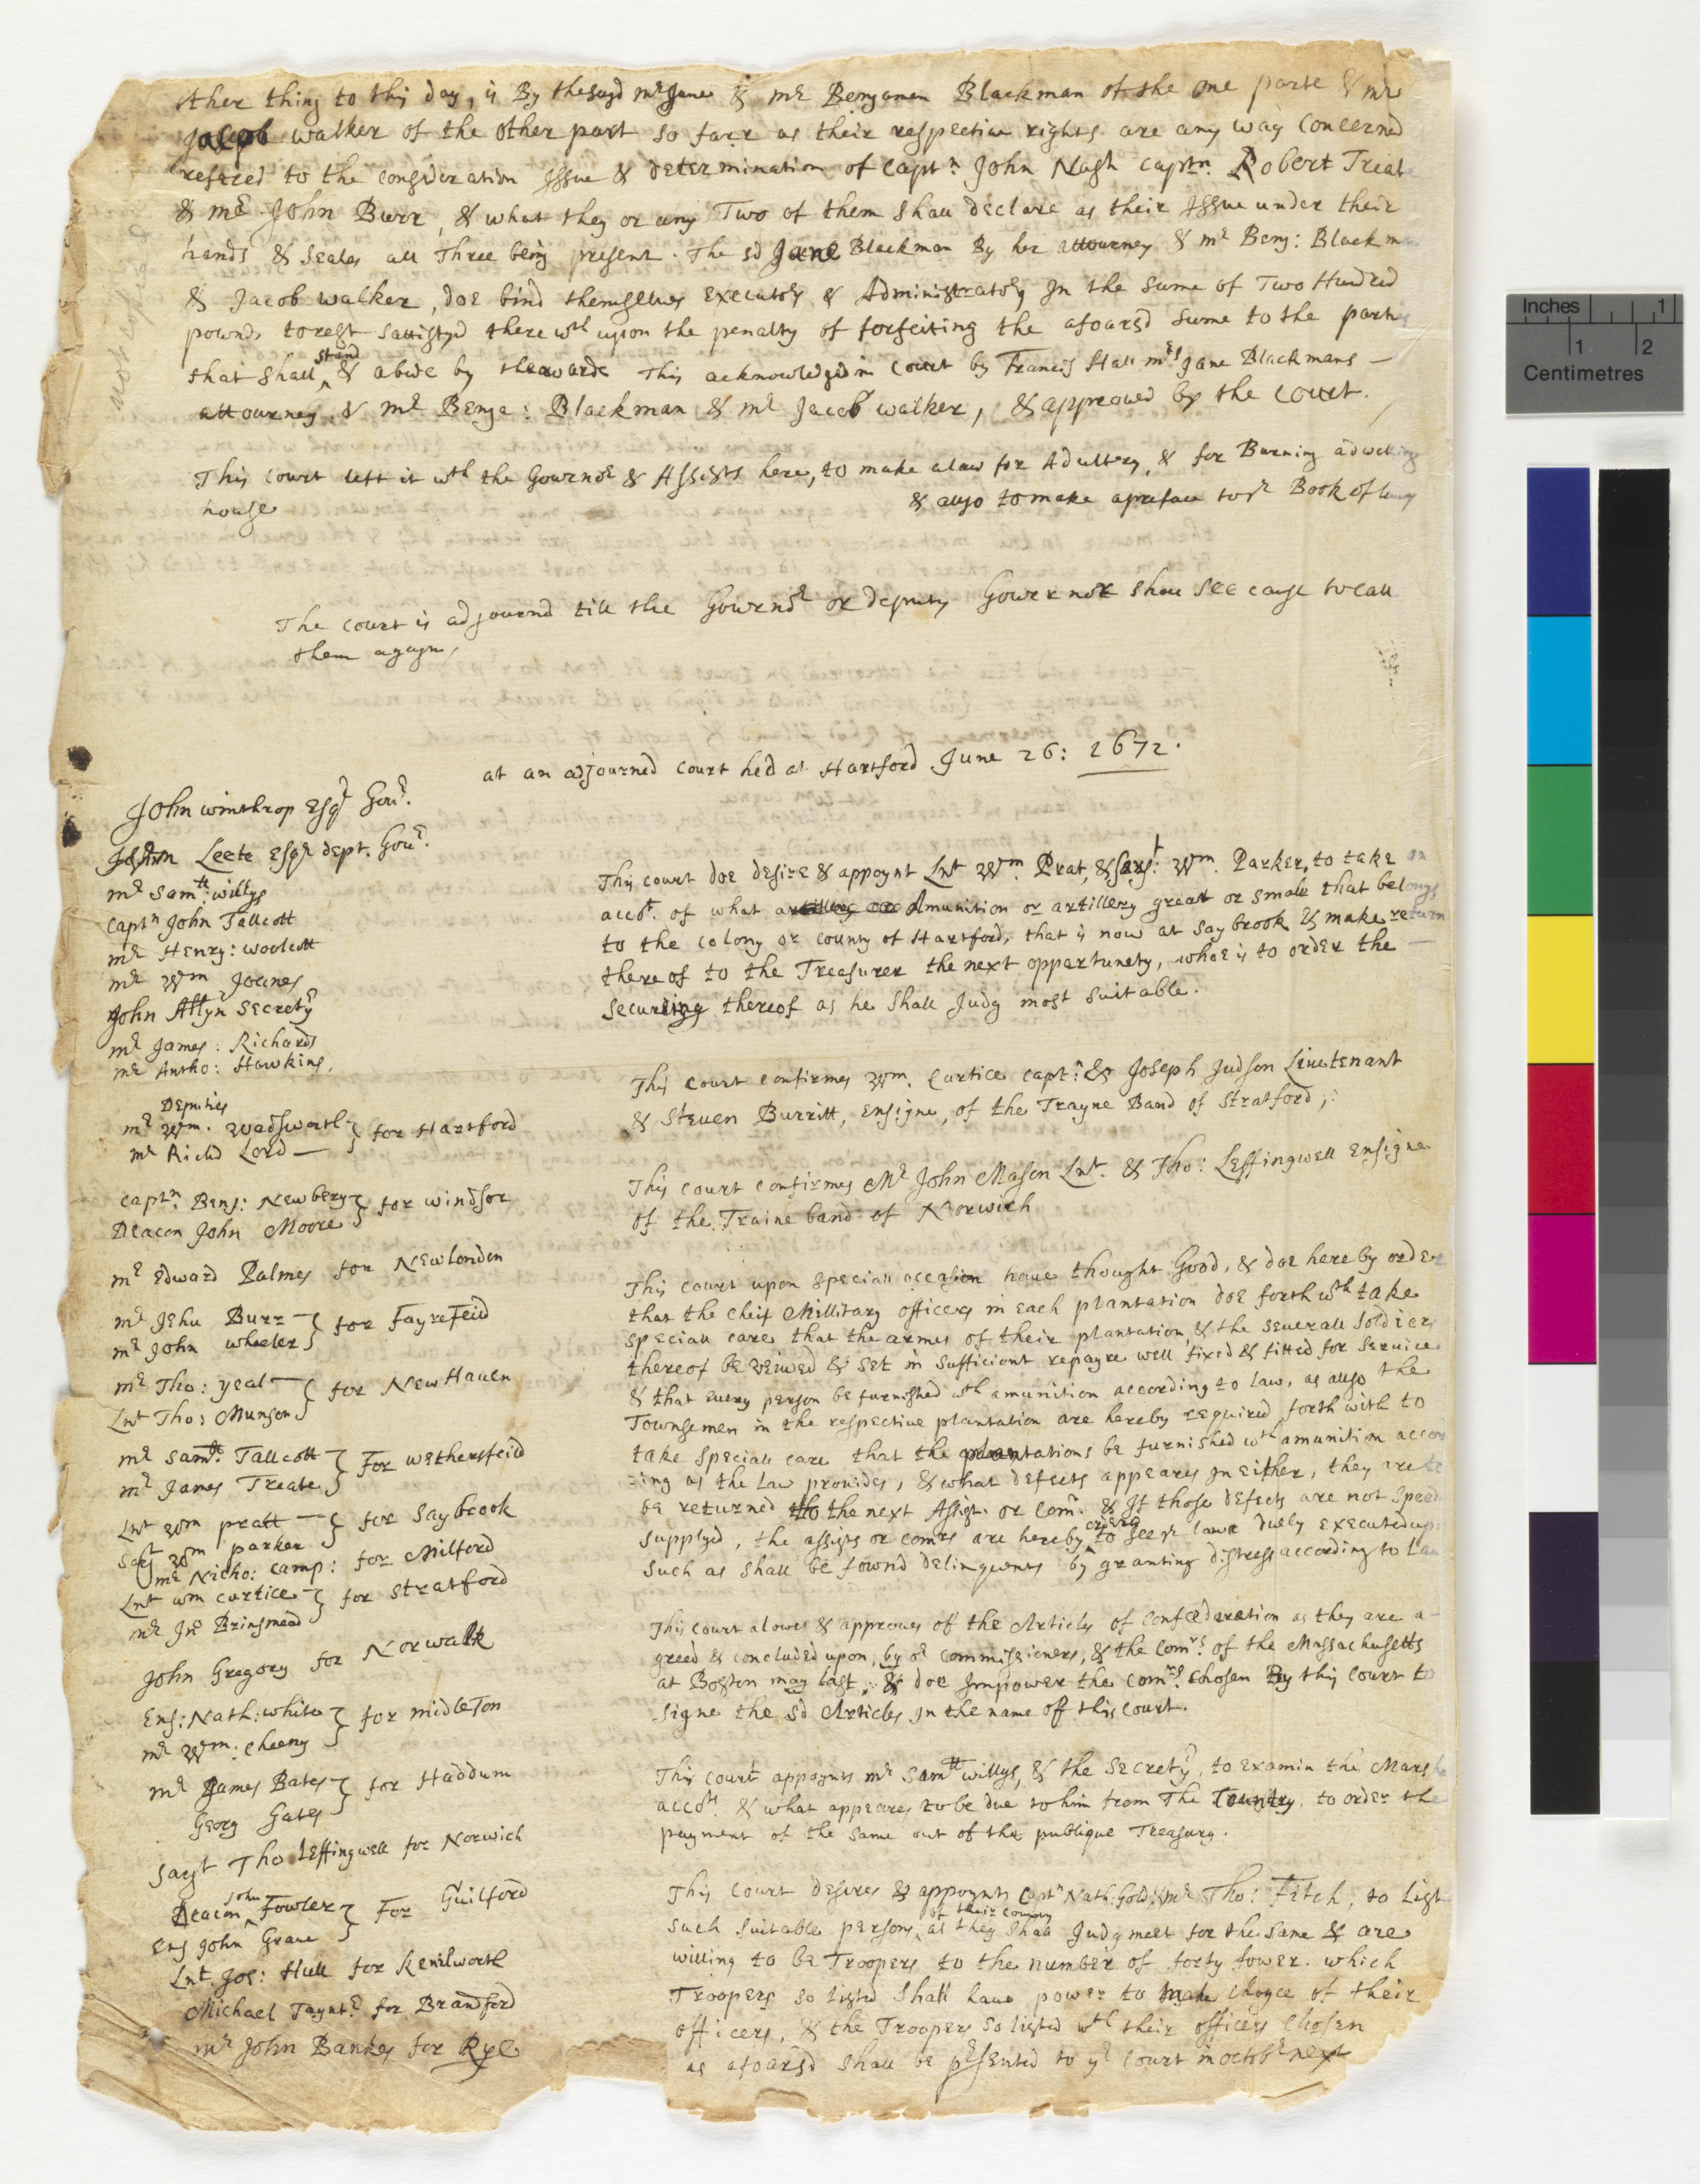 other thing to this day, is By the sayd mr Jane & mr Benjamen Blackman of the one parte & mr
Jacob walker of the other part so farr as their respective rights are any way Concerned
refered to the consideration Issue & determination of Captn John Nash Captn. Robert Treat
& mr John Burr, & what they or any Two of them Shall declare as their Issue under their
hands & Seales all Three being present. The sd Jane Blackman By her attourney & mr Benj: Blackm
& Jacob walker, doe bind themselves Executors & Administrators In the Sume of Two Hundred
pownds to rest sattisfyd there wth upon the penalty of forfeiting the afoarsd sume to the party
that shall stand & abide by the awarde This acknowledgd in Court by Francis Hall mrs Jane Blackmans —
attourney & mr Benja: Blackman & mr Jacob walker, & approved by the Court.
not
This Court left it wth the Governor & Assists here, to make a law for Adultery, & for Burning a dwelling
house & allso to make a preface to ye Book of lawes
The Court is adjournd till the Governor or deputy Governor shall see cause to call
them agayn,
at an adjourned Court held at Hartford June 26: 1672.
John winthrop Esqr Gour.
Leete Esqr dept. Gour.
mr Samll: willys
Captn John Tallcott
mr Henry: woolcott
mr Wm Joanes
John Allyn Secrety
mr James: Richards
mr Antho: Hawkins,
Deputies
mr Wm. wadsworth } for Hartford
mr Richd Lord —
Captn. Benj: Newbery } for windsor
Deacon John Moore
mr Edward Palmes for Newlondon
mr Jehu Burr — } for Fayrefeild
mr John wheeler
mr Tho: yeal — } for New Haven
Lnt Tho: Munson
mr Samll. Tallcott } For wethersfeild
mr James Treate
Lnt wm pratt — } for Saybrook
Sarjt wm parker
mr Nicho: Camp: for Milford
Lnt wm Curtice } for Stratford
mr Jno Brinsmead
John Gregory for Norwalk
Ens: Nath: white } for midleton
mr Wm: Cheeny
mr James Bates } for Haddum
Georg Gates
Sarjt Tho Leffingwell for Norwich
Deacon John Fowler } For Guilford
Ens John Grave
Lnt. Jos: Hull for Kenilworth
Michael Tayntr for Brandford
mr John Bankes for Rye
This Court doe desire & appoynt Lnt Wm. Prat, & Sarjt: Wm. Parker, to take an
accot. of what artillery or Amunition or artillery great or small that belongs
to the Colony or County of Hartford, that is now at Saybrook & make return
thereof to the Treasurer the next oppertunety, whoe is to order the —
securing thereof as he Shall Judg most suitable.
This Court confirmes Wm. Curtice Captn: & Joseph Judson Lieutenant
& Steven Burritt, Ensigne, of the Trayne Band of Stratford,:
This Court confirmes Mr John Mason Lnt. & Tho: Leffingwell Ensigne
of the Traine band of Norwich
This Court upon Speciall occasion have thought Good, & doe hereby order
that the cheif Millitary officers in each plantation doe forth wth take
speciall care that the armes of their plantation, & the severall Soldiers
thereof be veiwed & set in sufficient repayre well fixed & fitted for Service
& that every person be furnished wth amunition according to Law, as allso the
Townsemen in the respective plantation are hereby required forth with to
take Speciall care that the plantations be furnished wth amunition accor
ding as the Law provides, & what defects appeares in either, they are to
be returned to the next Assist. or Comr. & If those defects are not Speed
supplyd, the assists or comrs are hereby ordered to see ye lawe duely executed up
such as shall be fownd delinquents by granting distress according to Law
This Court alowes & approves of the Articles of Confœderation as they are a-
greed & concluded upon, by or Commissioners, & the Comrs of the Massachusetts
at Boston may last, & doe Impower the Comrs. chosen By this Court to
signe the sd Articles in the name off this Court.
This Court appoynts mr Samll willys, & the Secrety, to examin the Marsh
accots & what appeares to be due to him from The Country, to order the
payment of the same out of the publique Treasury.
This Court desires & appoynts Captn Nath: Gold & mr Tho: Fitch, to List
such suitable persons of their County as they Shall Judg meet for the same & are
willing to be Troopers to the number of forty fower. which
Troopers so listed Shall have power to make Choyce of their
officers, & the Troopers so listed wth their officers Chosen
as afoarsd Shall be presented to ye Court in octobr next